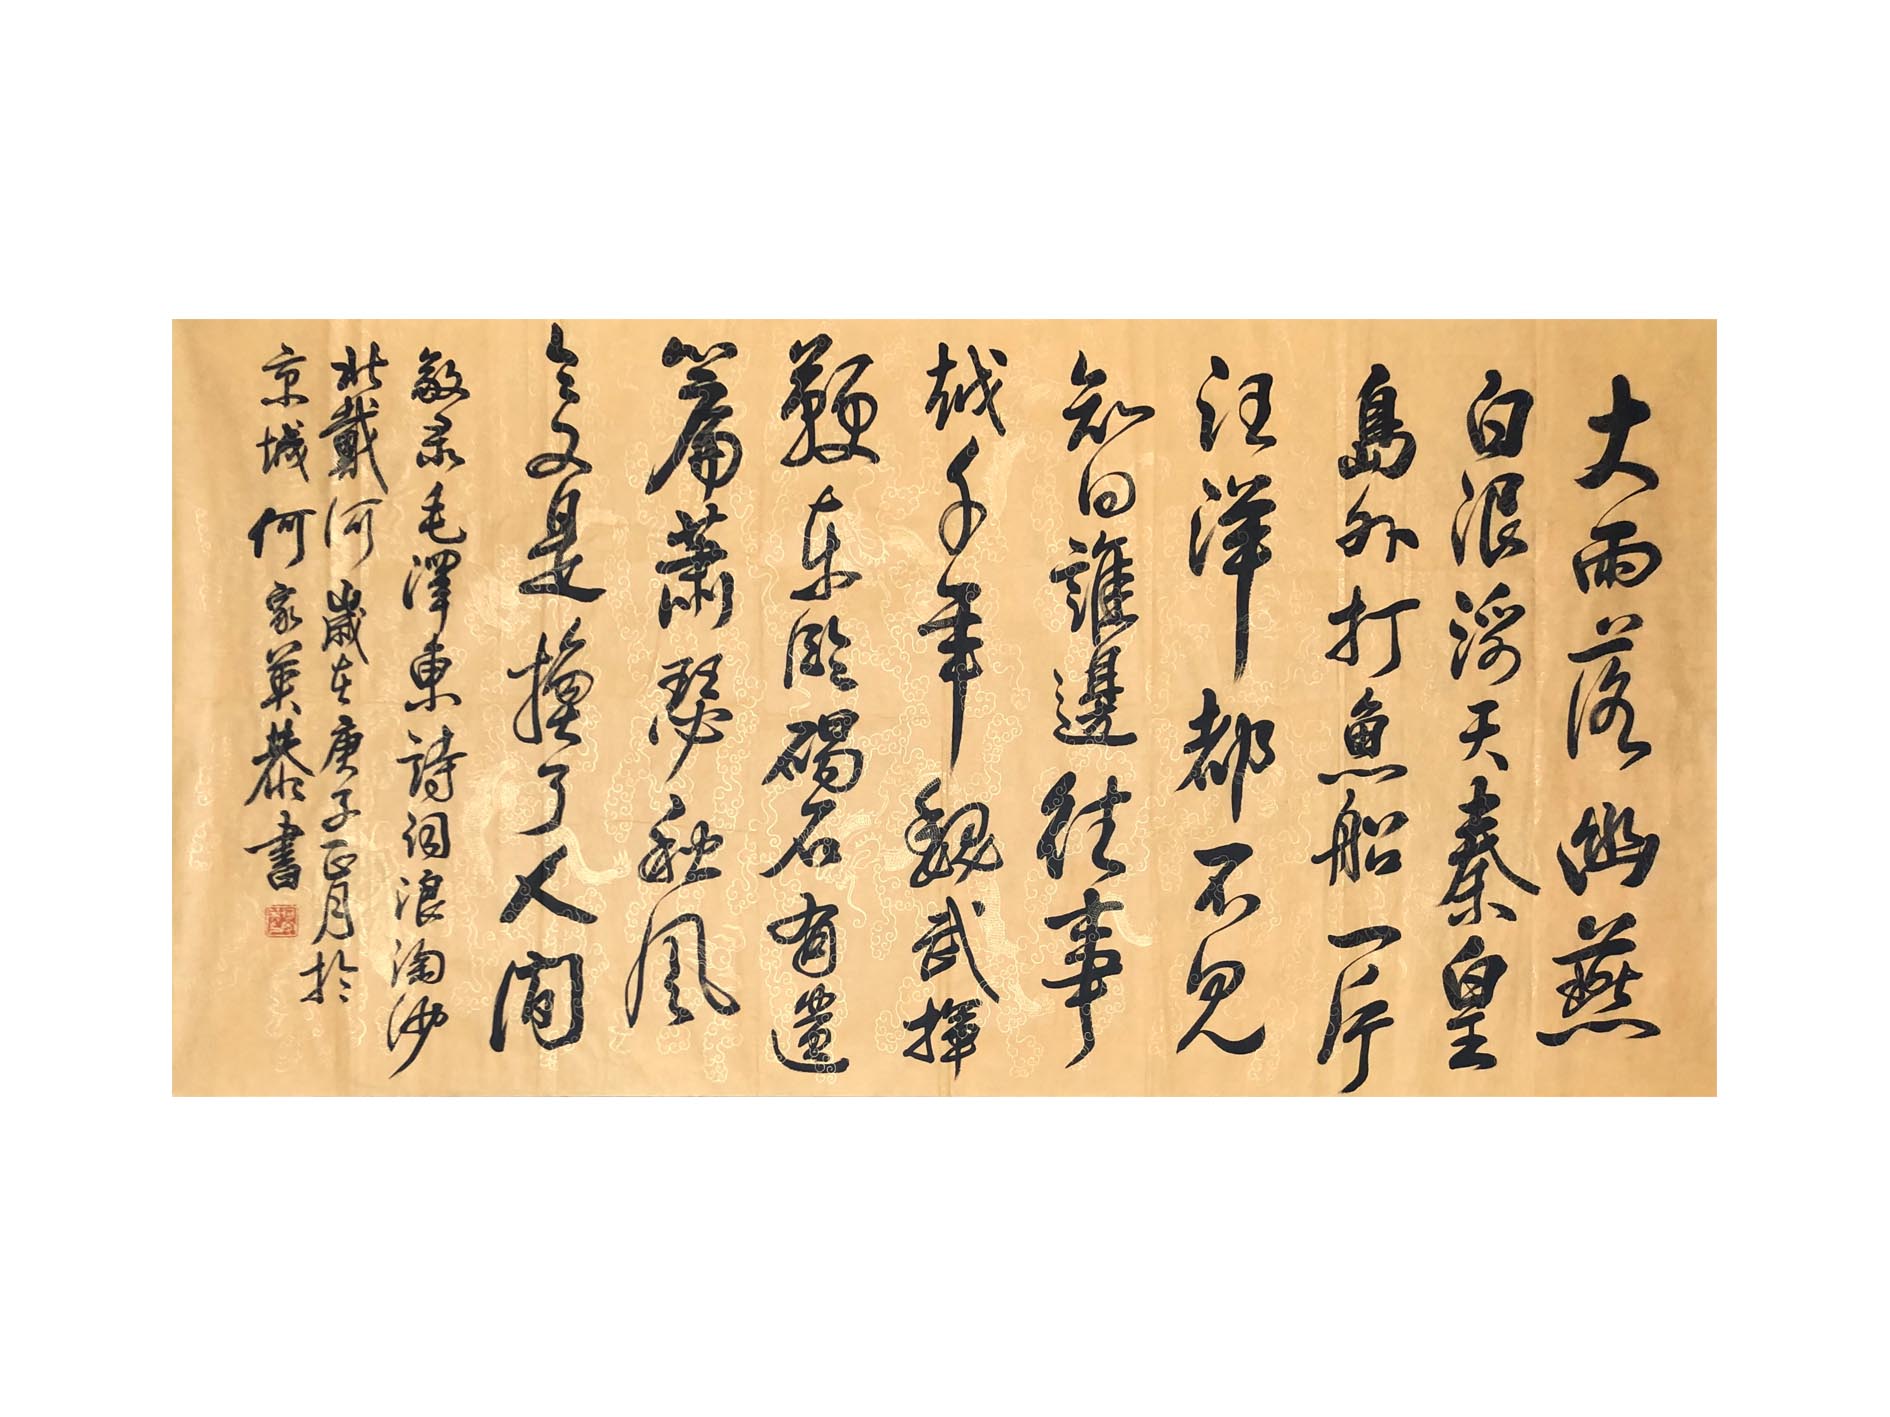 大雨落幽燕
白浪滔天秦皇
島外打魚船一片
汪洋都不見
知向誰邊往事
越千年魏武揮
鞭東臨碣石有遺
篇蕭瑟秋風
今又是換了人間
敬录毛澤東詩词浪淘沙
北戴河歲在庚子正月於
京城何家英恭書